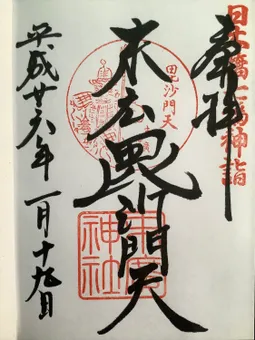 日本橋七福神詣
奉拝
毘沙門天
末広毘沙門天
神社
平成廿六年 一月十九日